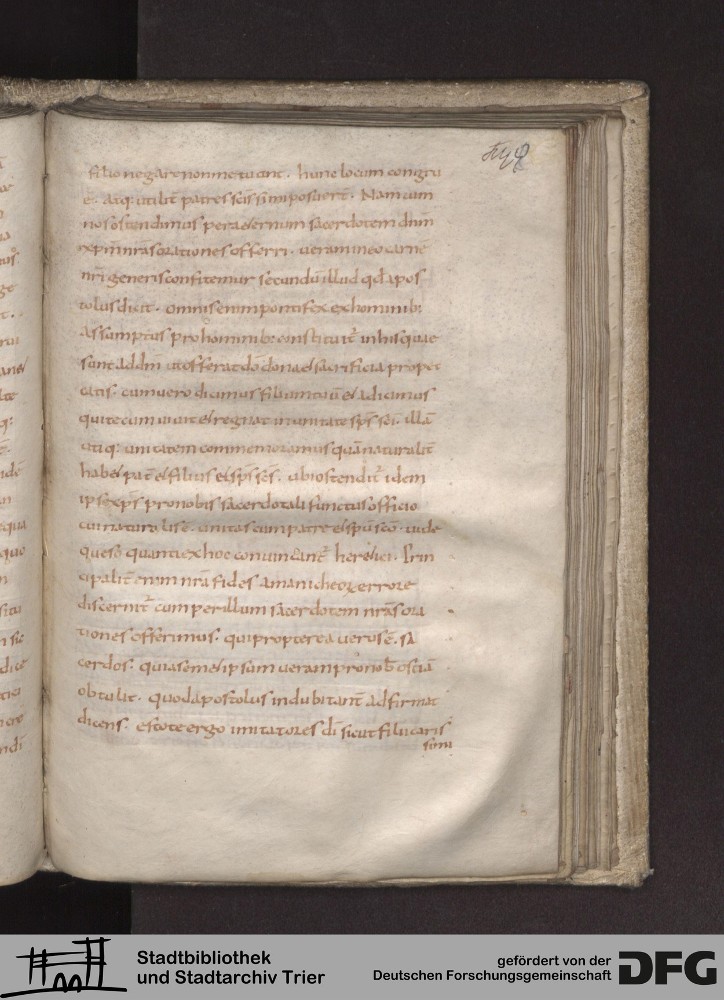 filio negare non metuant. hunc locum congru
e. atq; utilit patres sci s̄ imposuert. Nam cum
nos ostendimus per aeternum sacerdotem dnm
xpm nras orationes offerri. ueram in eo carnē
nri generis confitemur secundū illud qd apos
tolus dicit. omnis enim pontifex ex hominib;
assumptus pro hominib; constituit̄ in his quae
sunt ad dm̄ ut offerat dona et sacrificia pro pec
catis. cum uero dicimus filium tuū et adicimus
qui tecum uiuit et regnat in unitate sps sci. illā
utiq; unitatem commemoramus quā naturalit̄
habet pat̄ et filius et sps scs. ubi ostendit̄ idem
ipse xps pro nobis sacerdotali functus officio
cui naturalis ē unitas cum patre et spu sco. uide
queso quanti ex hoc conuincant̄ heretici. Prin
cipalit̄ enim nra fides a manicheorum errore
discernit̄ cum per illum sacerdotem nras ora
tiones offerimus. qui propterea uerus ē. sa
cerdos. quia semetipsum ueram pro nob ostiā
obtulit. quod apostolus indubitant̄ adfirmat
dicens. estote ergo imitatores dī sicut filii caris
simi
Stadtbibliothek
und Stadtarchiv Trier
gefördert von der
Deutschen Forschungsgemeinschaft
DFG